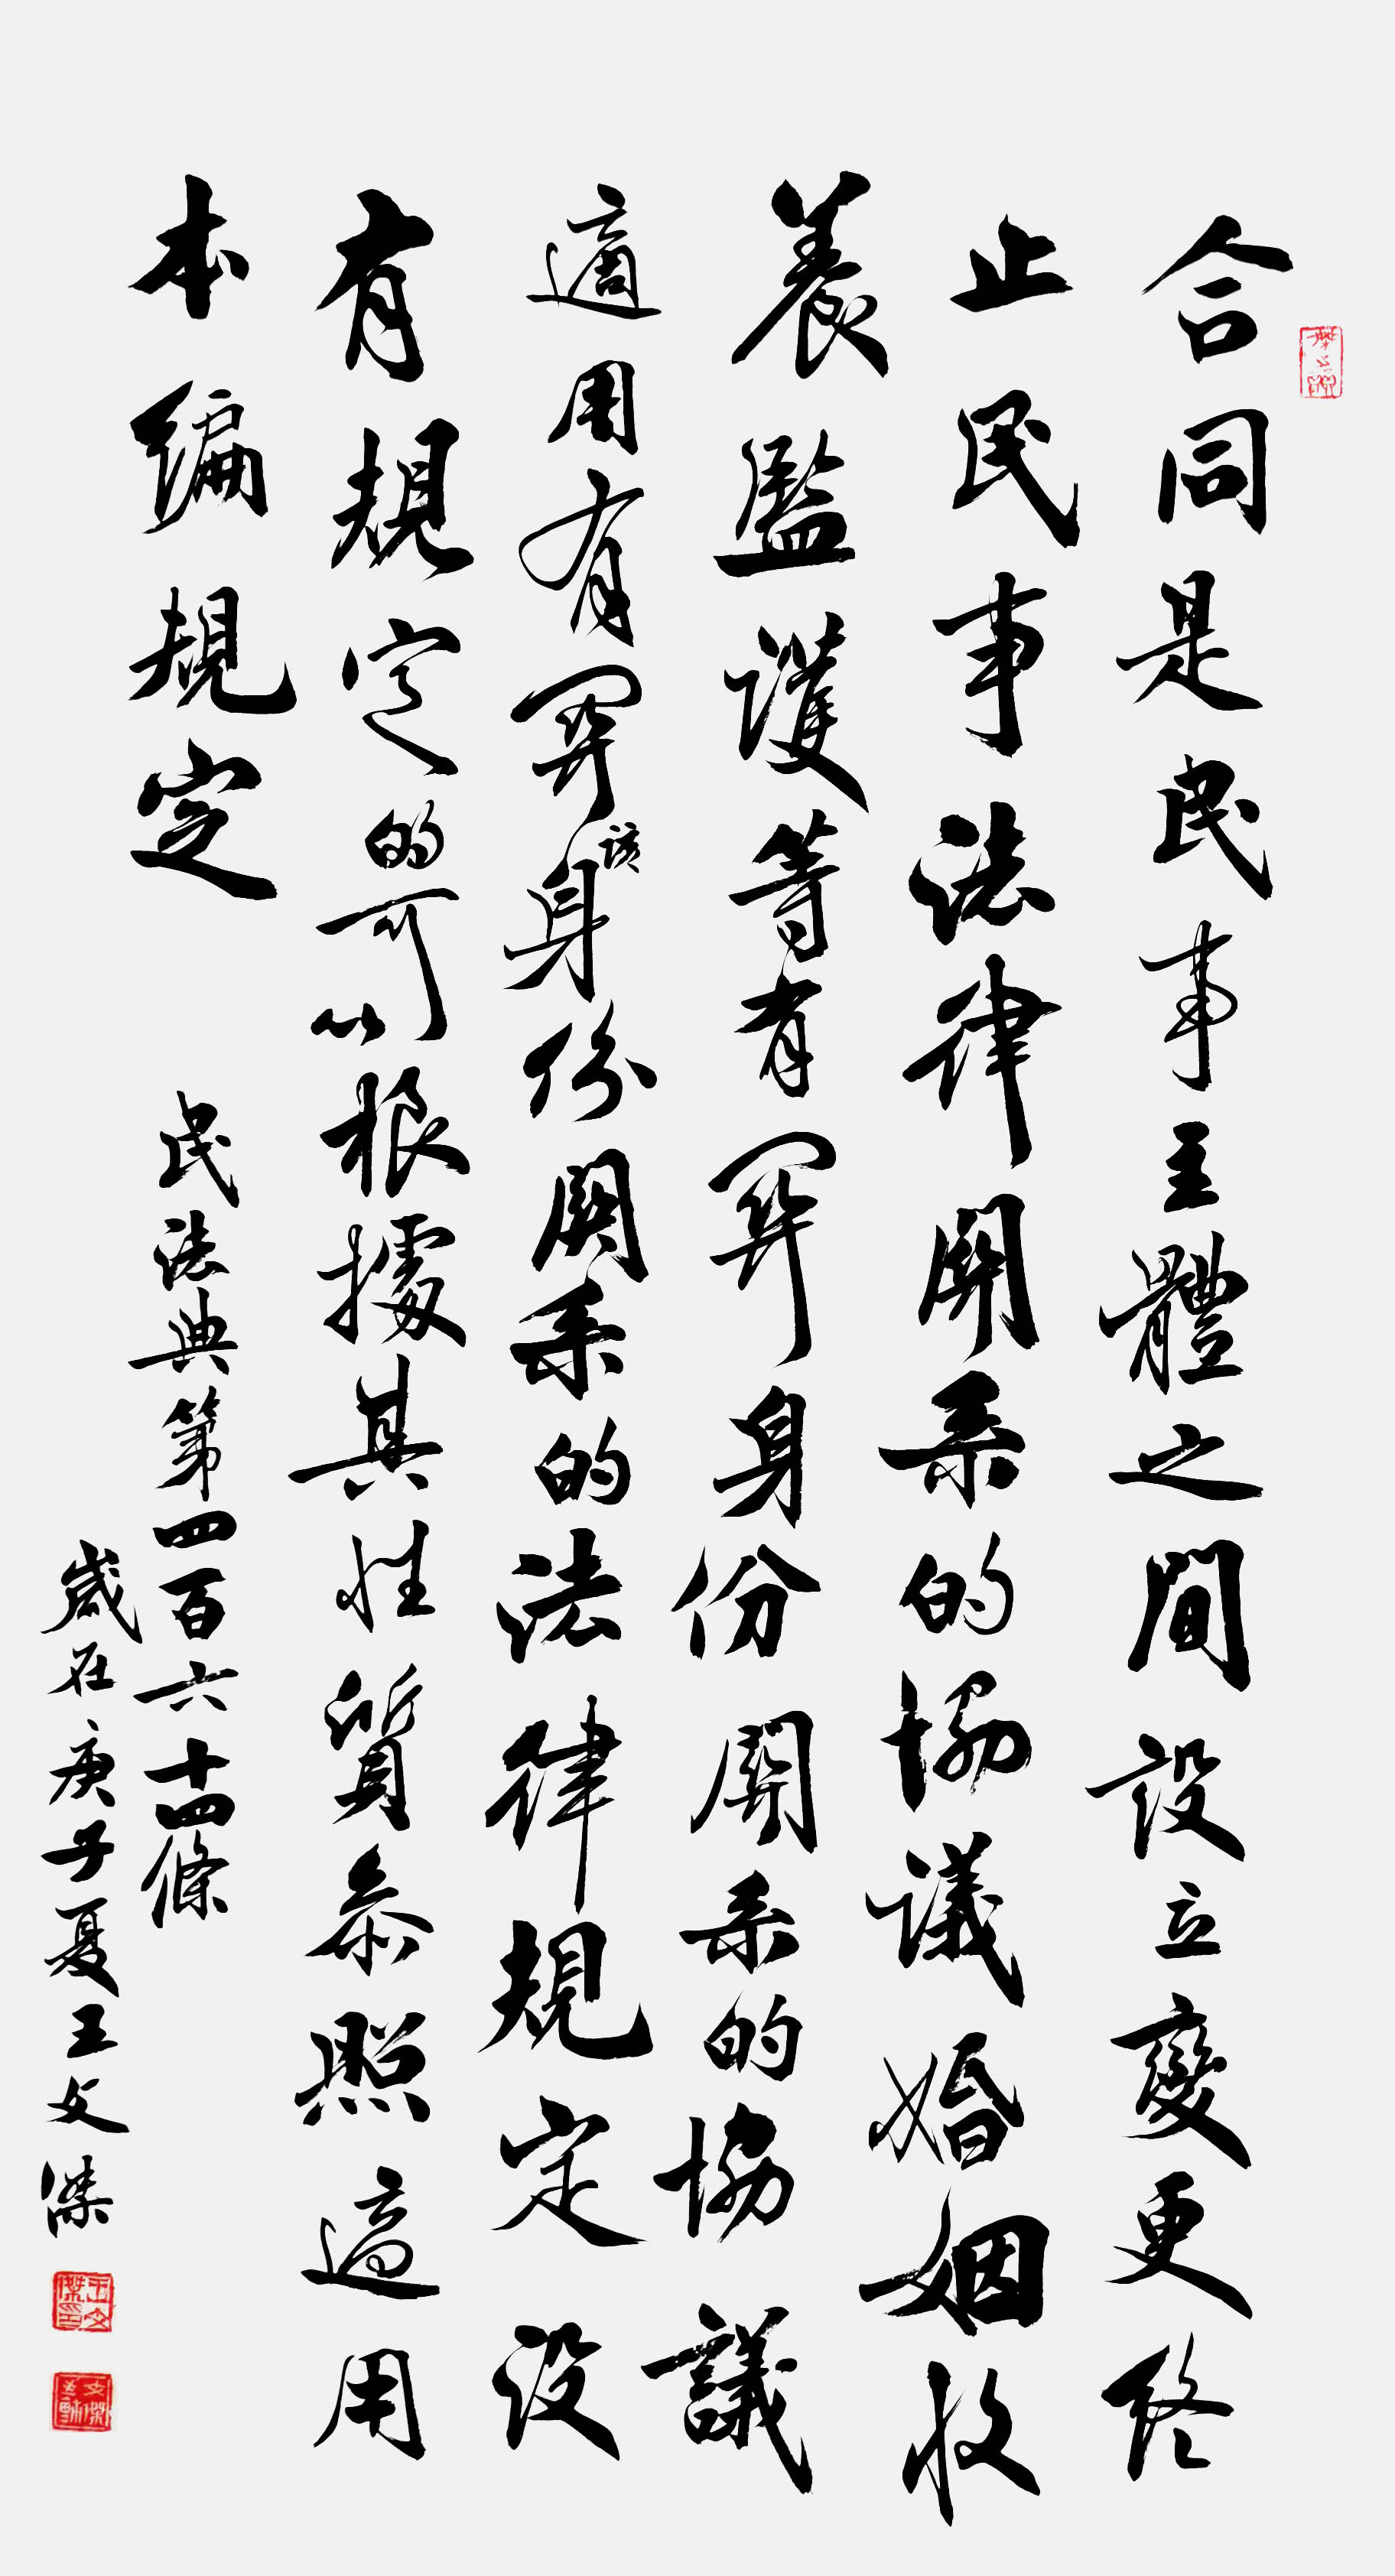 合同是民事主體之間設立變更終
止民事法律關系的協議婚姻收
養監護等有關身份關系的協議
適用有關該身份關系的法律規定没
有規定的可以根據其性質參照適用
本編規定
民法典第四百六十四條
歲在庚子夏王文傑
王文傑印